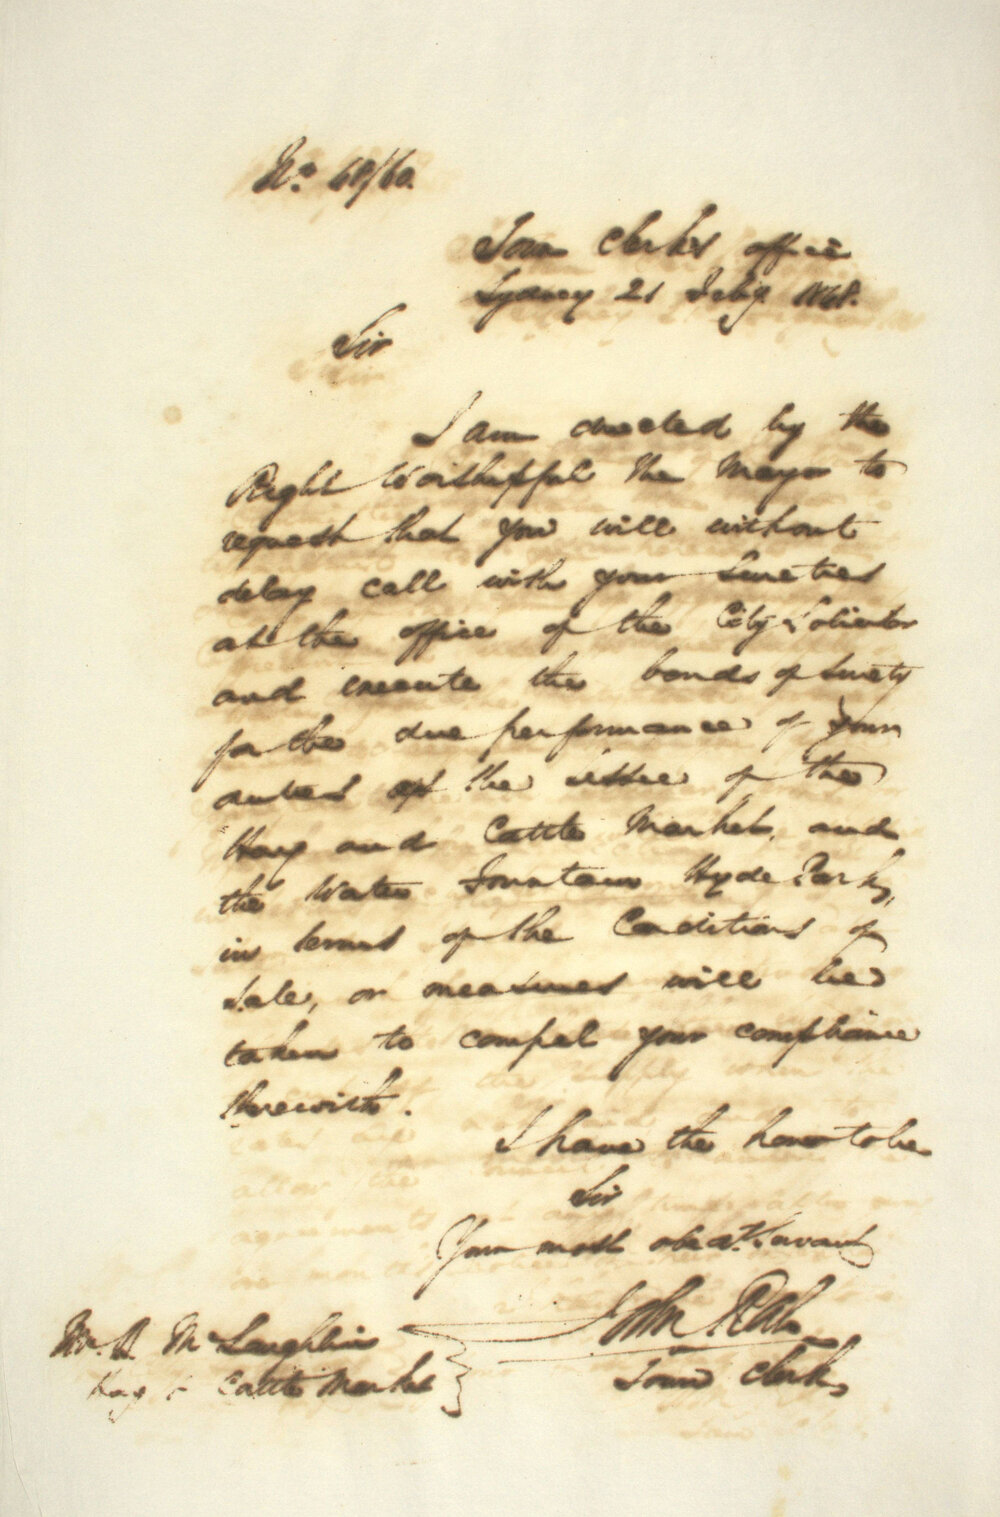 No. 68/60.
Town Clerk's office
Sydney 21 Feby. 1868.
Sir
I am directed by the
Right Worshipful the Mayor to
request that you will without
delay call with your Sureties
at the office of the City Solicitor
and execute the bonds of Surety
for the due performance of your
duties as the lessee of the
Hay and Cattle Market, and
the Water Fountain Hyde Park,
in terms of the Conditions of
Sale, or measures will be
taken to compel your compliance
therewith.
I have the honor to be
Sir
Your most obedt. Servant
John
Town Clerk
Mr. McLaughlin
Hay & Cattle Market